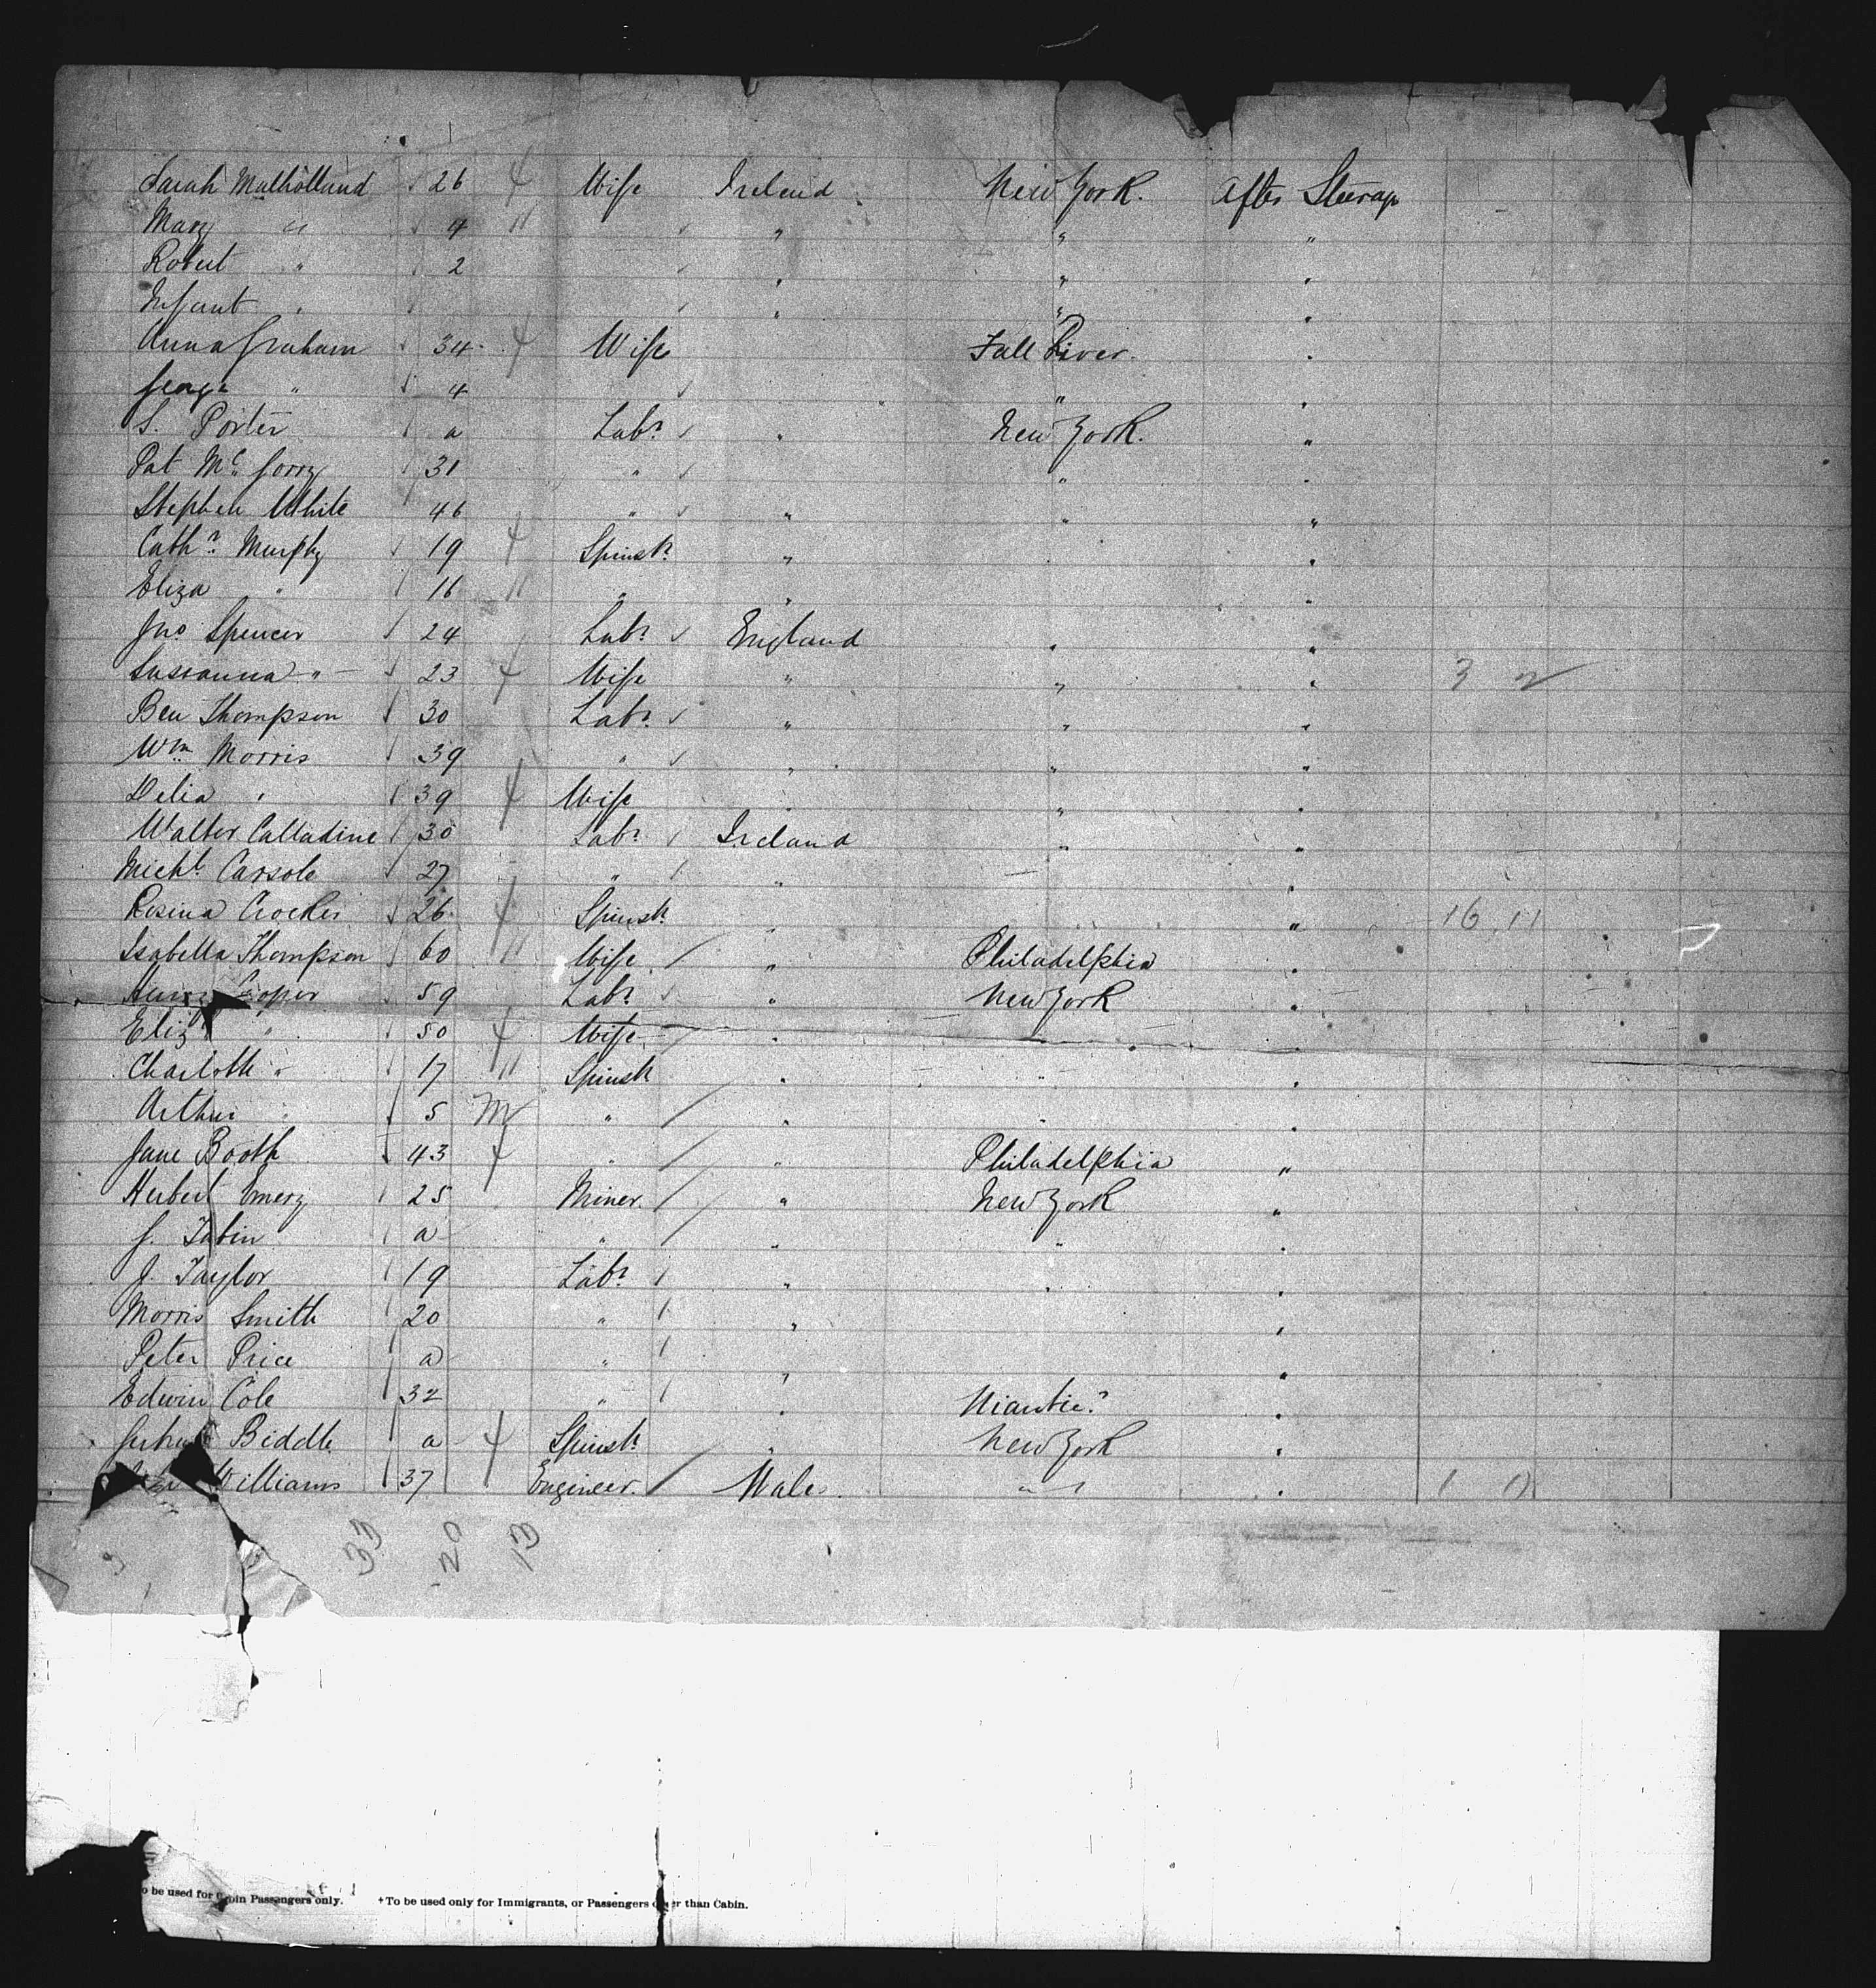 Sarah Mulholland 26 Wife Ireland New York. After Steerage
Mary " 4 " " "
Robert " 2 " " "
Infant " " " "
Anna Graham 34 Wife Fall River. "
George " 4 " "
S. Porter a Labr " New York. "
Pat Mc 31 " " "
Stephen White 46 " " " "
Cathn Murphy 19 Spinstr " "
Eliza " 16 " " "
Jno Spencer 24 Labr England " "
Susanna " 23 Wife " " " 3 2
Ben Thompson 30 Labr " " "
Wm Morris 39 " " " "
Delia " 39 Wife " " "
Walter Calladine 30 Labr Ireland " "
Michl 27 " " "
Rosina Crocker 26 Spinstr " " 16 11
Isabella Thompson 60 Wife " Philadelphia "
59 Labr " New York "
Eliz " 50 Wife " "
Charlotte " 17 Spinstr " " "
Arthur " 5 M " " " "
Jane Booth 43 " " Philadelphia "
Herbert Emery 25 Miner " New York "
a " " " "
J. Taylor 19 Labr " " "
Morris Smith 20 " " "
Peter Price a " " "
Edwin Cole 32 " " Niantic? "
Biddle a Spinstr " New York "
Williams 37 Engineer. Wales " " 1 0
33 20 13
o be used for Cabin Passengers only. †To be used only for Immigrants, or Passengers other than Cabin.